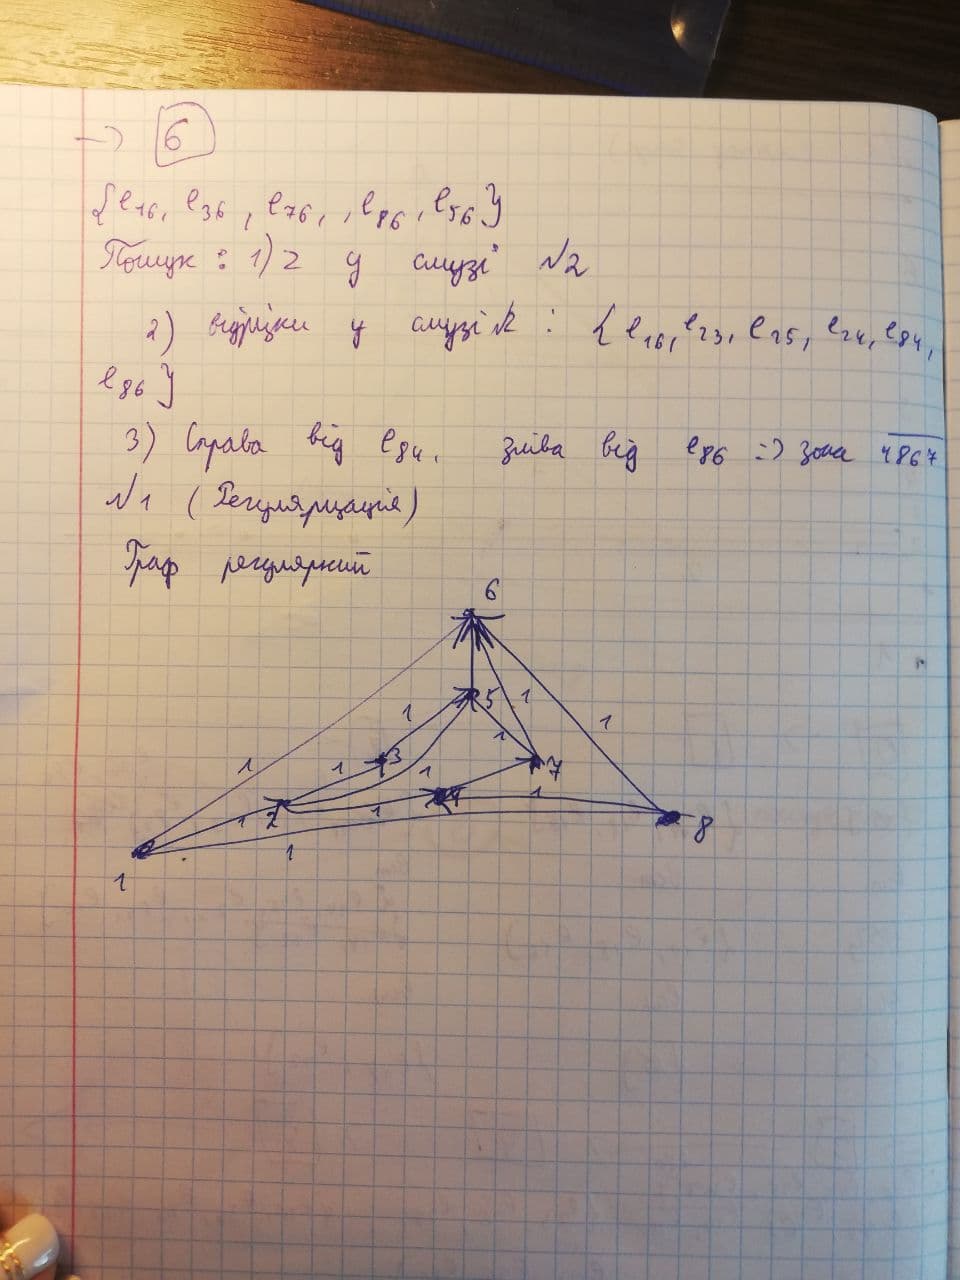 → 6
{e16, e36, e76, , e86, e56}
Пошук: 1) z у смузі №2
2) відрізки у смузі №2: {e16, e23, e25, e24, e84,
e86}
3) Справа від e84, зліва від e86 => зона 4867
№1 (Регуляризація)
Граф регулярний
6
5
1
1
1
1
1
3
1
7
1
4
1
2
1
1
8
1
1